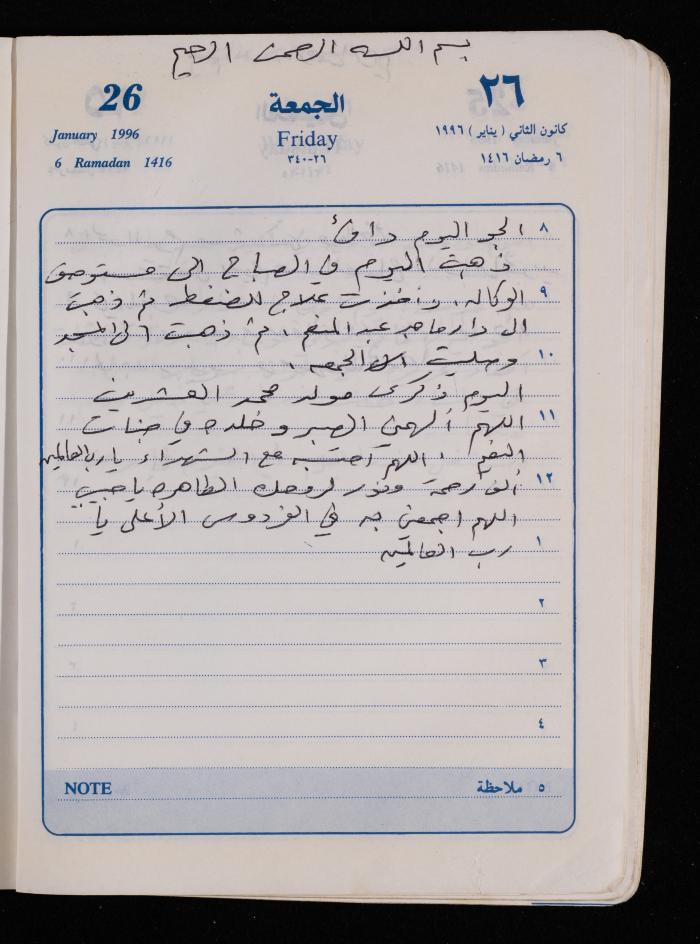 بسم الله الرحمن الرحيم
26
الجمعة
٢٦
January 1996
Friday
كانون الثاني ( يناير ) ١٩٩٦
6 Ramadan 1416
٢٦-٣٤٠
٦ رمضان ١٤١٦
٨ الجو اليوم دافئ
ذهبت اليوم في الصباح الى مستوصف
٩ الوكاله، وأخذت علاج للضغط ثم ذهبت
الى دار ماجد عبد المنعم، ثم ذهبت الى المسجد
١٠ وصليت الجمعه.
اليوم ذكرى مولد محمد العشرين
١١ اللهم ألهمني الصبر وخلده في جنات
النعيم، اللهم احتسبه مع الشهداء يا رب العالمين
١٢ ألف رحمة ونور لروحك الطاهره يا حبيبي
اللهم اجمعني به في الفردوس الأعلى يا
١ رب العالمين
٢
٣
٤
NOTE
٥ ملاحظة